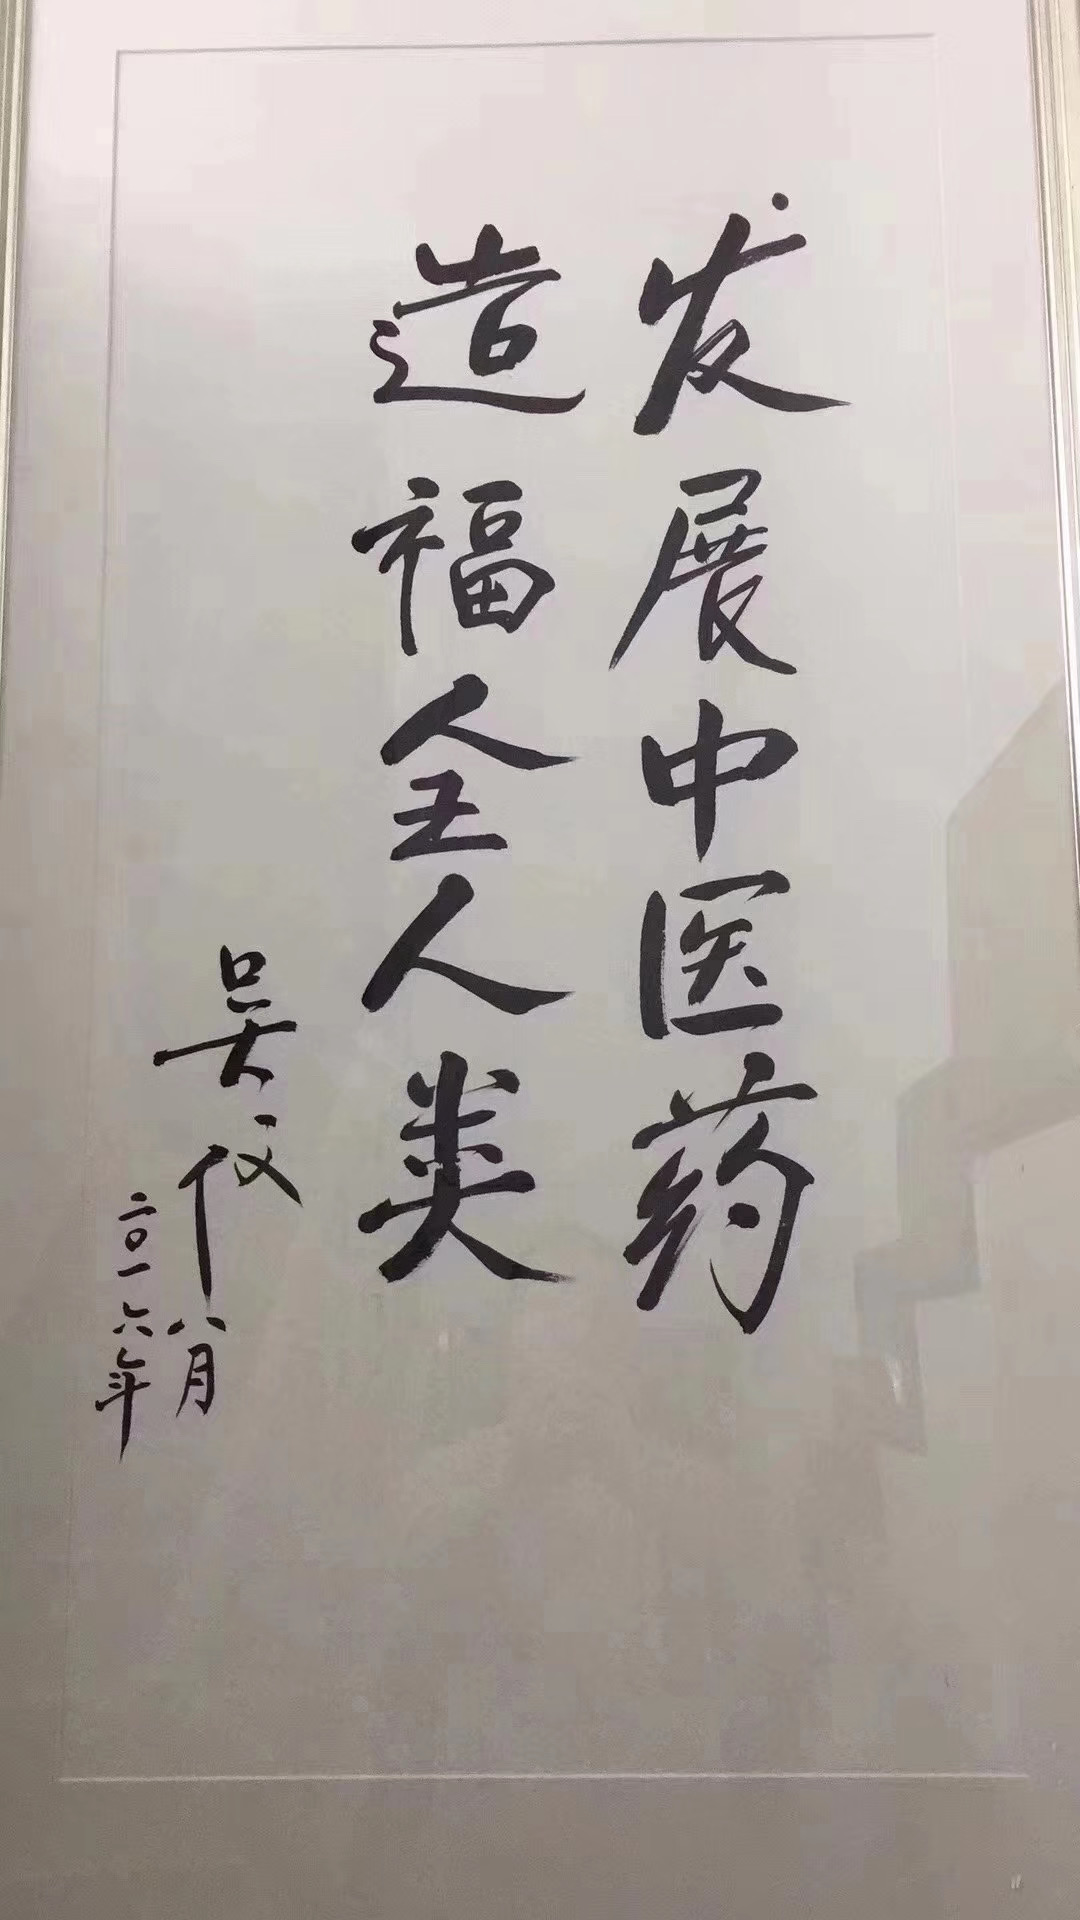 发展中医药
造福全人类
吴仪
八月
二〇一六年